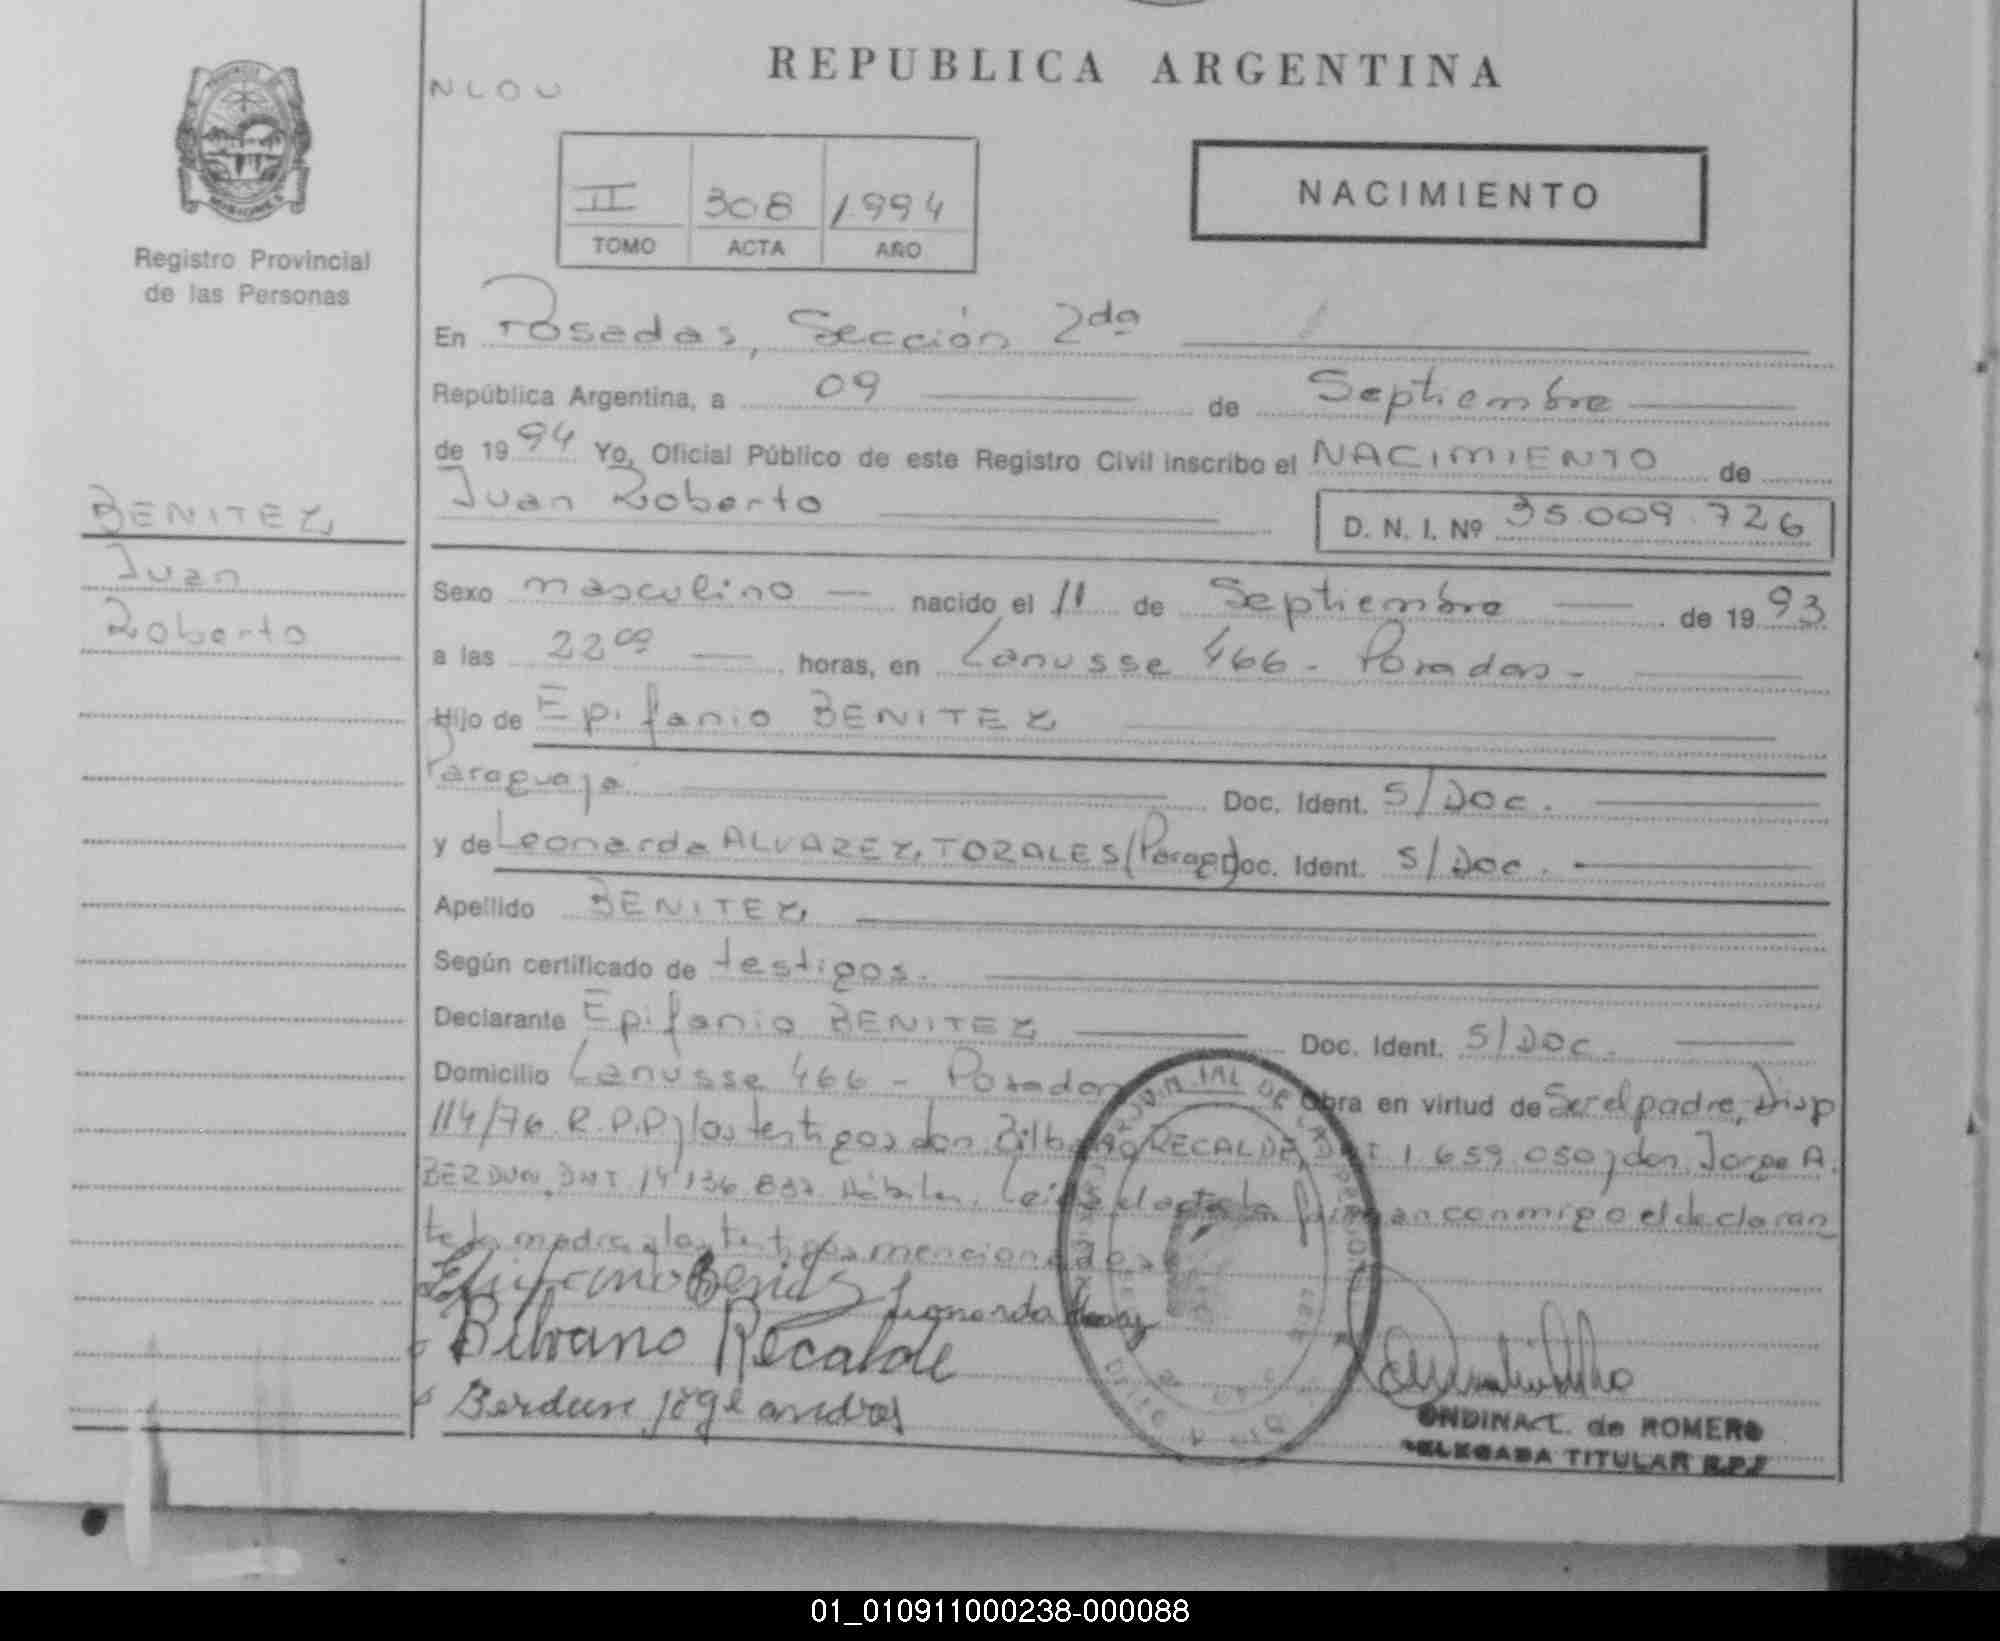 REPUBLICA ARGENTINA
NLOU
II 308 1994
TOMO ACTA AÑO
NACIMIENTO
MISIONES
Registro Provincial
de las Personas
BENITEZ
Juan
Roberto
En Posadas, Sección 2da
República Argentina, a 09 de Septiembre
de 1994 Yo, Oficial Público de este Registro Civil inscribo el NACIMIENTO de
Juan Roberto D. N. I. Nº 35.009.726
Sexo masculino nacido el 11 de Septiembre de 1993
a las 22 horas, en Lanusse 466 - Posadas -
Hijo de Epifanio BENITEZ
Paraguaja Doc. Ident. S/Doc.
y de Leonarda ALVAREZ TORALES (Parag Doc. Ident. S/Doc.
Apellido BENITEZ
Según certificado de testigos.
Declarante Epifanio BENITEZ Doc. Ident. S/Doc.
Domicilio Lanusse 466 - Posadas Obra en virtud de Ser el padre, Disp
114/76 R.P.P y los testigos don RECALDE, 1.659.050 y don Jorge A.
BERDUN DNI 14.136.837 Hábiles. Leída el acta la firman conmigo el declaran
te la madre y los testigos mencionados
Bilvano Recalde
Berdun jorge andres
ONDINA L. de ROMERO
DELEGADA TITULAR R.P.P
01_010911000238-000088